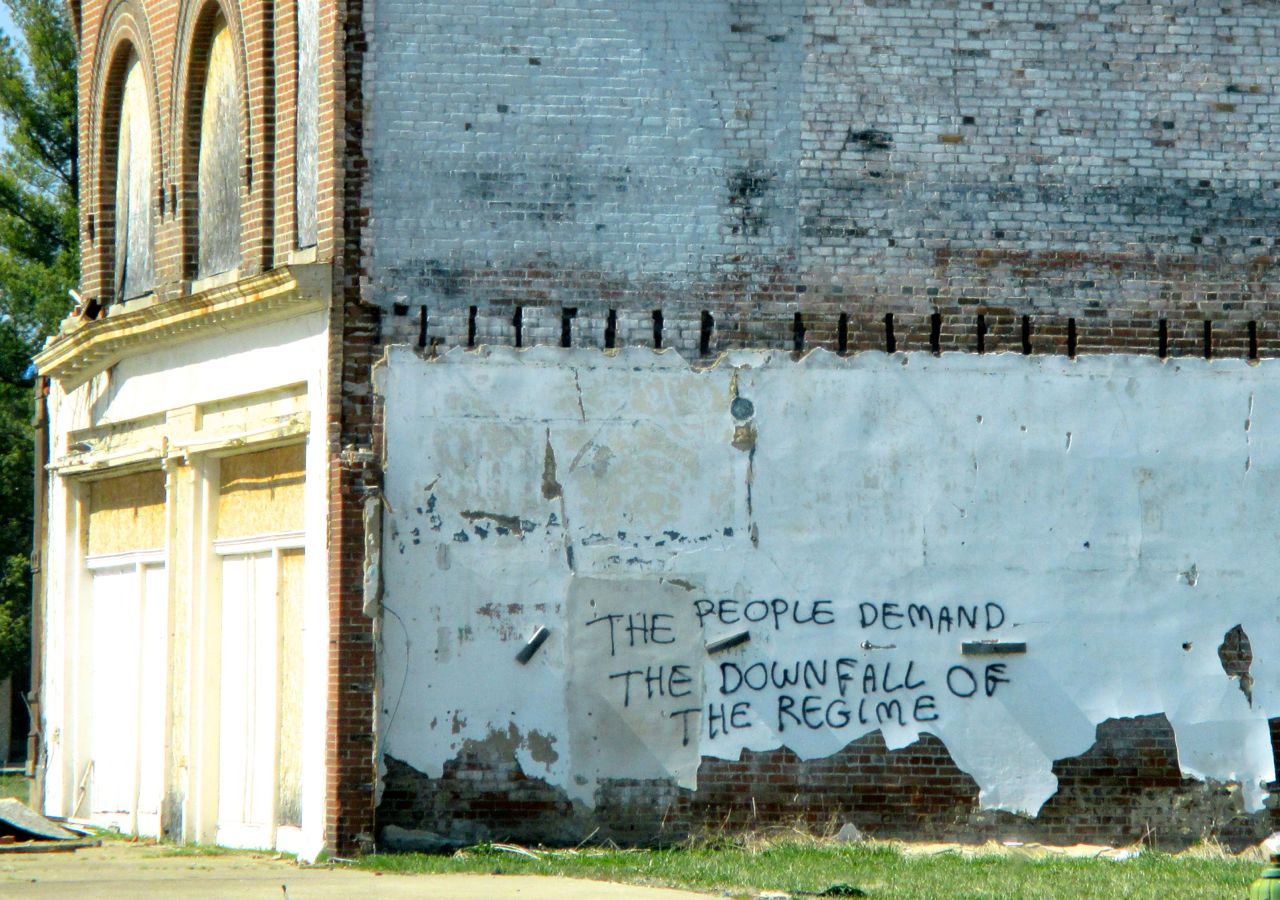 THE PEOPLE DEMAND
THE DOWNFALL OF
THE REGIME